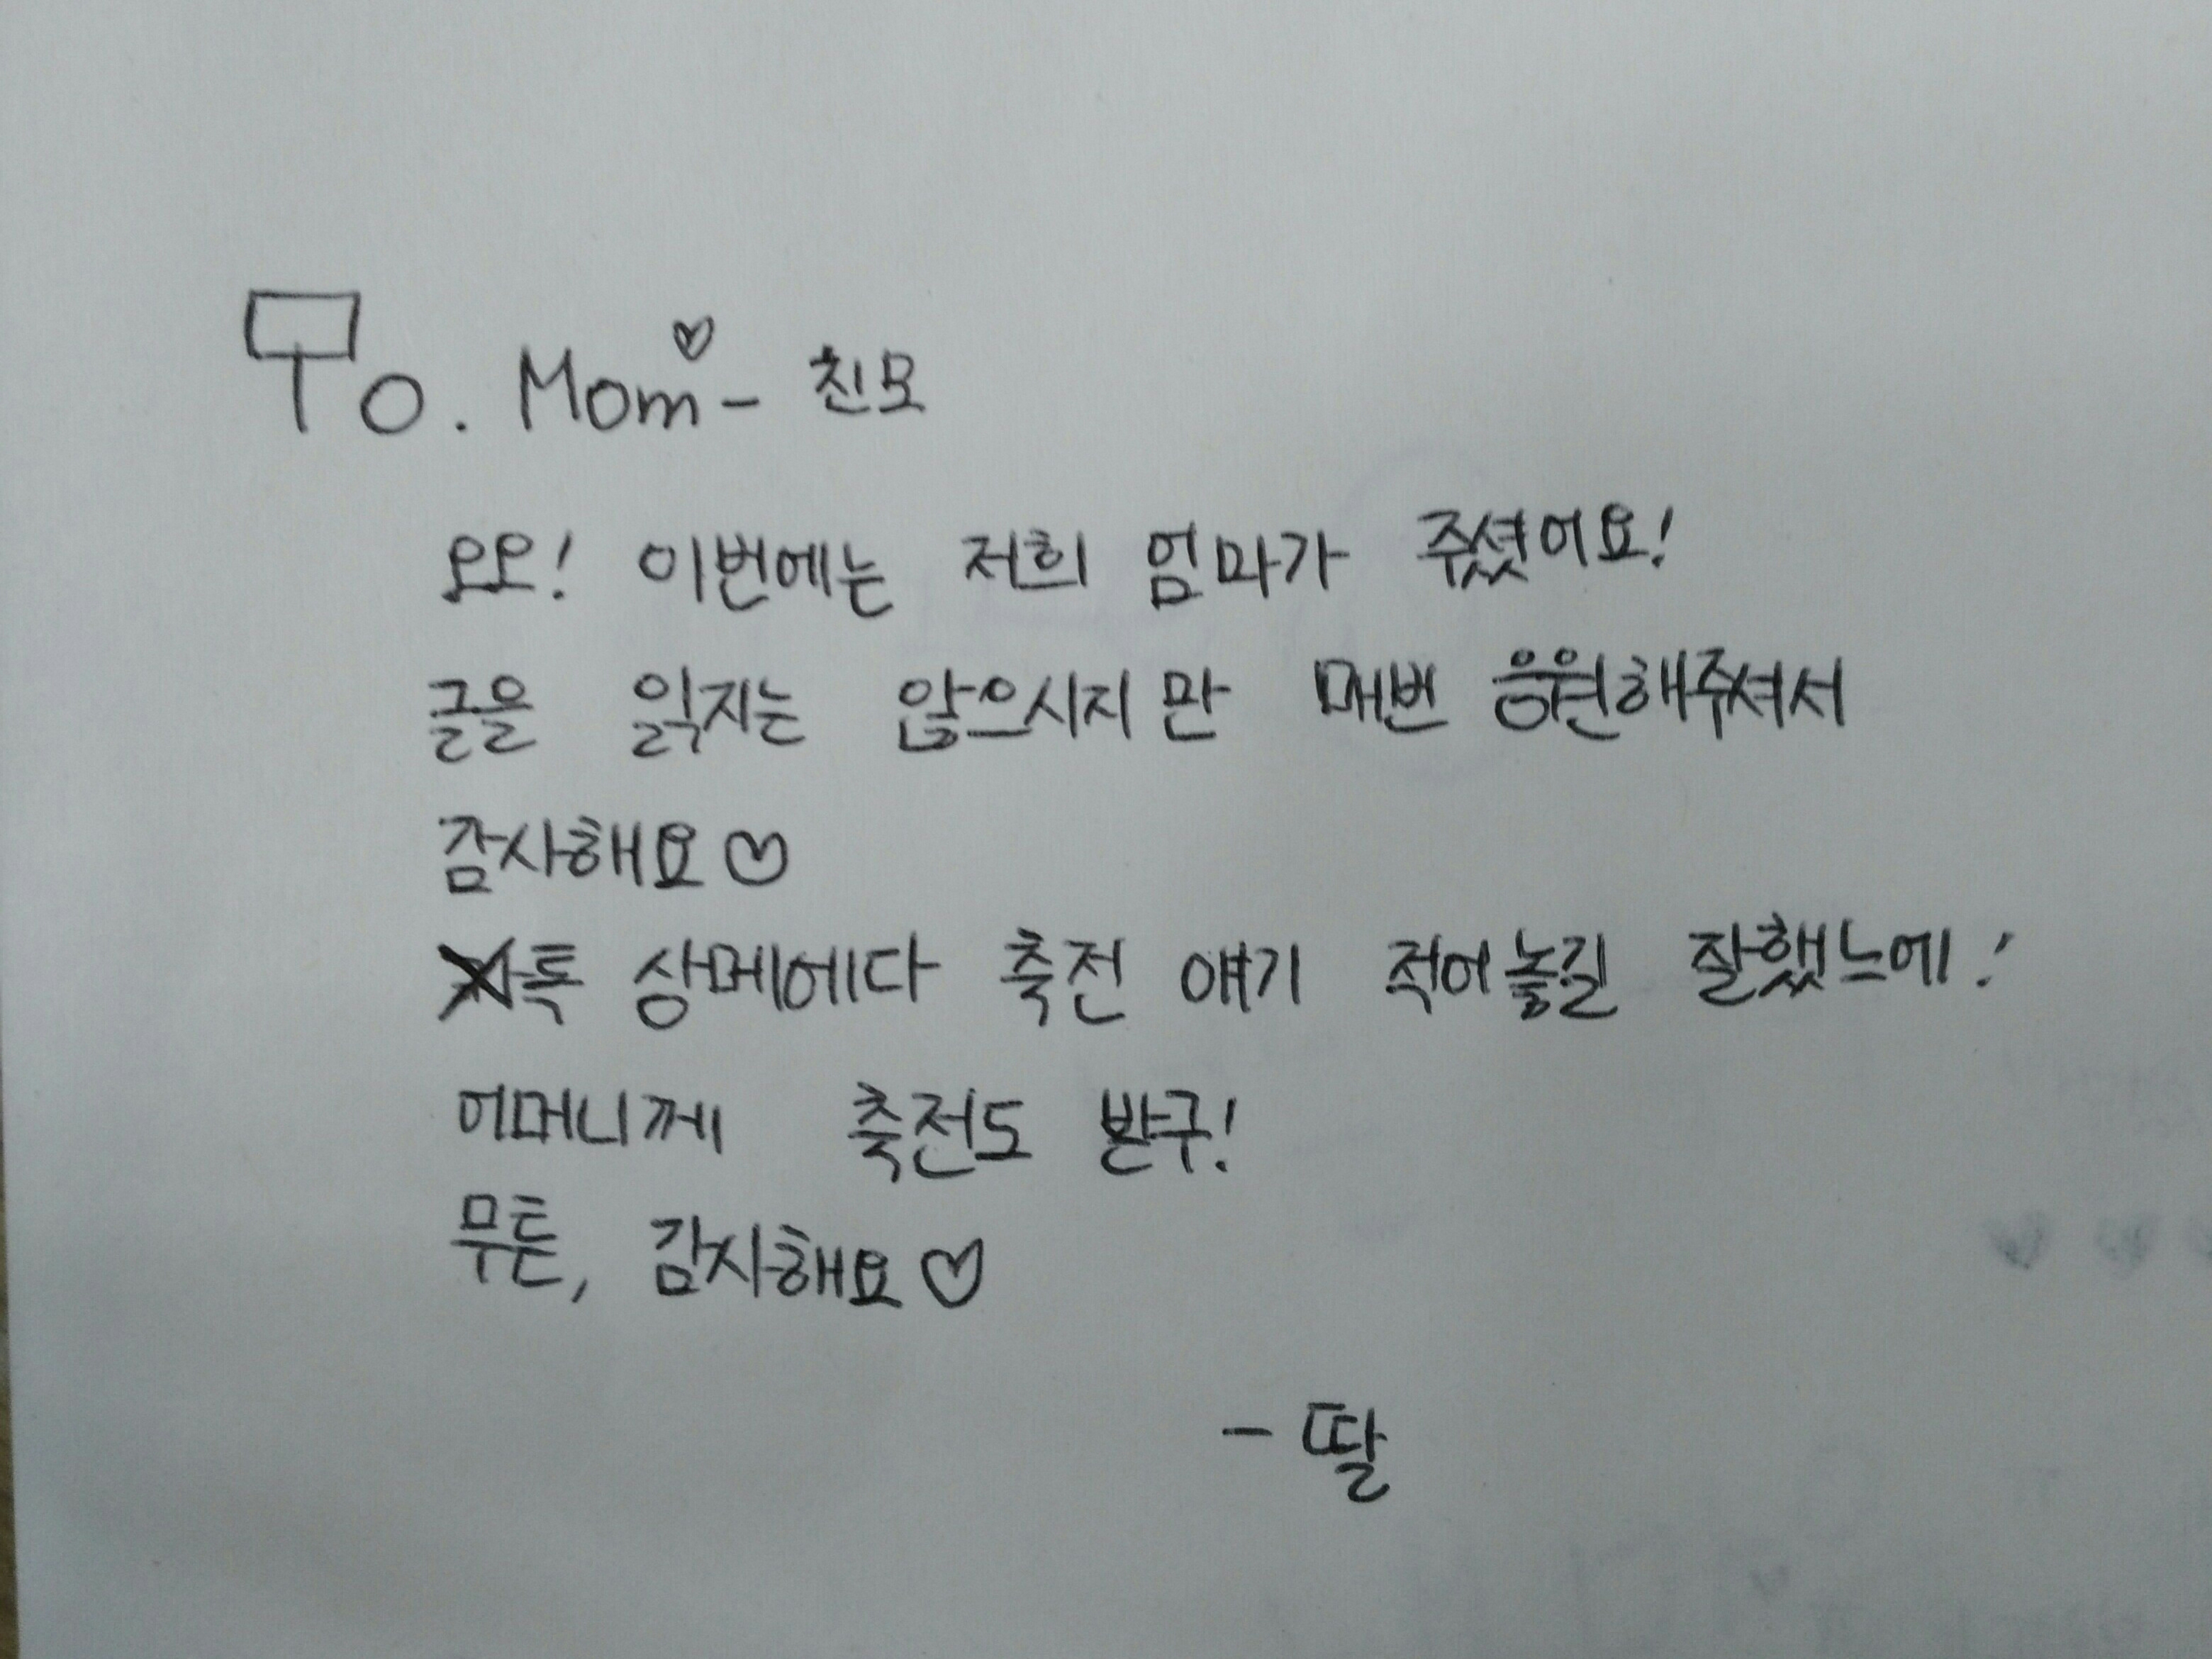 To. Mom♡- 친모
오오! 이번에는 저희 엄마가 주셨어요!
글을 읽지는 않으시지만 매번 응원해주셔서
감사해요♡
톡 상메에다 축전 얘기 적어놓길 잘했느에!
어머니께 축전도 받구!
무튼, 감사해요♡
- 딸